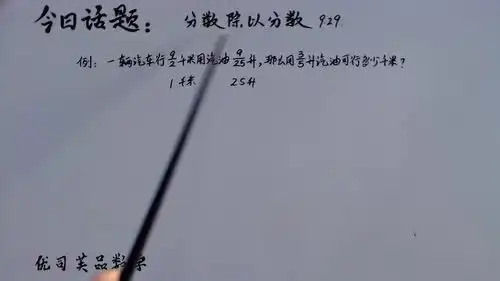 今日话题： 分数除以分数 929
例：一辆汽车行9/2千米用汽油9/25升，那么用3/5升汽油可行多少千米？
1千米 25升
优司芙品数学